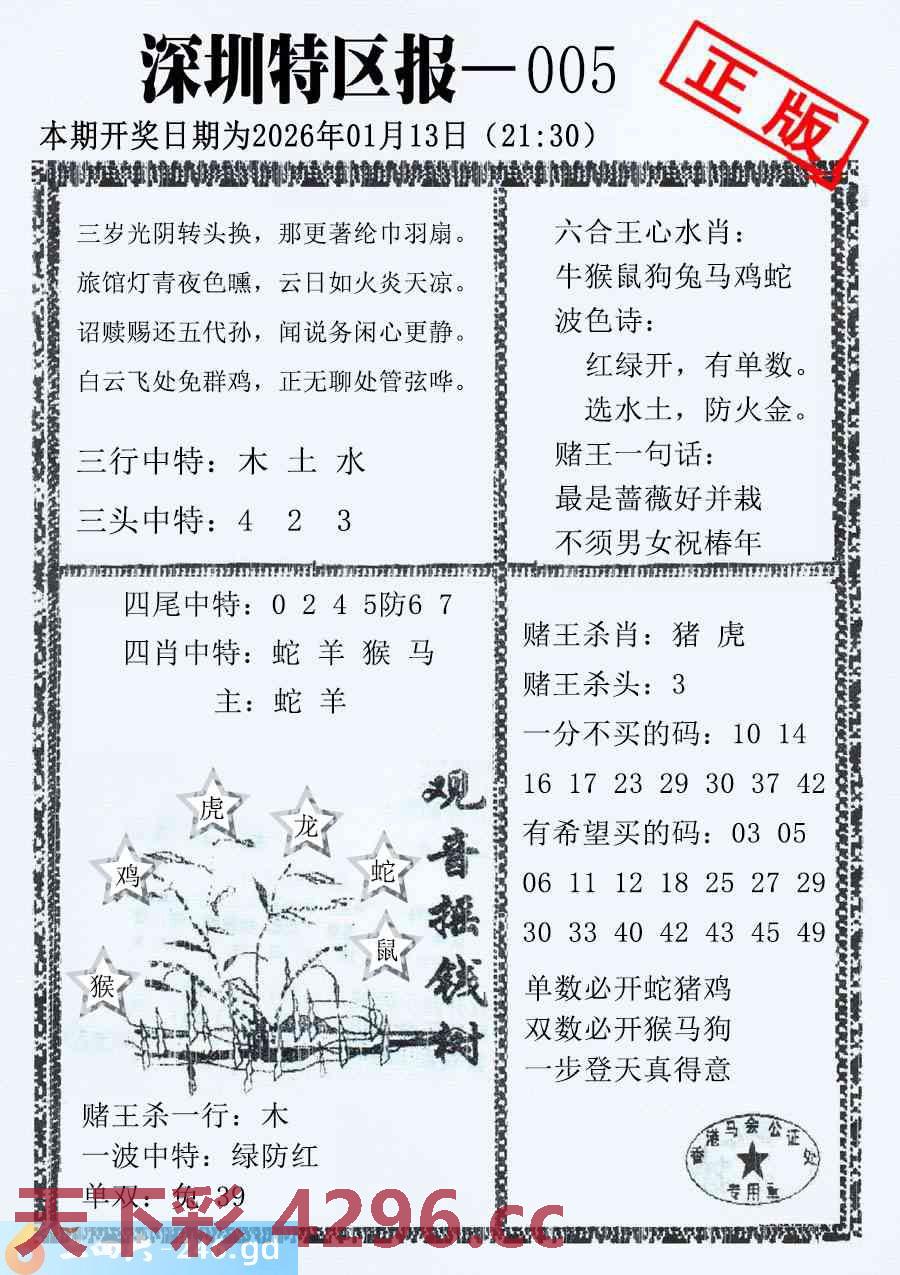 深圳特区报—005
正版
本期开奖日期为2026年01月13日（21:30）
三岁光阴转头换，那更著纶巾羽扇。
旅馆灯青夜色曛，云日如火炎天凉。
诏赎赐还五代孙，闻说务闲心更静。
白云飞处免群鸡，正无聊处管弦哗。
三行中特：木 土 水
三头中特：4 2 3
六合王心水肖：
牛猴鼠狗兔马鸡蛇
波色诗：
红绿开，有单数。
选水土，防火金。
赌王一句话：
最是蔷薇好并栽
不须男女祝椿年
四尾中特：0 2 4 5防6 7
四肖中特：蛇 羊 猴 马
主：蛇 羊
虎
龙
鸡
蛇
鼠
猴
观音摇钱树
赌王杀一行：木
一波中特：绿防红
单双：兔 39
赌王杀肖：猪 虎
赌王杀头：3
一分不买的码：10 14
16 17 23 29 30 37 42
有希望买的码：03 05
06 11 12 18 25 27 29
30 33 40 42 43 45 49
单数必开蛇猪鸡
双数必开猴马狗
一步登天真得意
香港马会公证处
专用章
天下彩 4296.cc